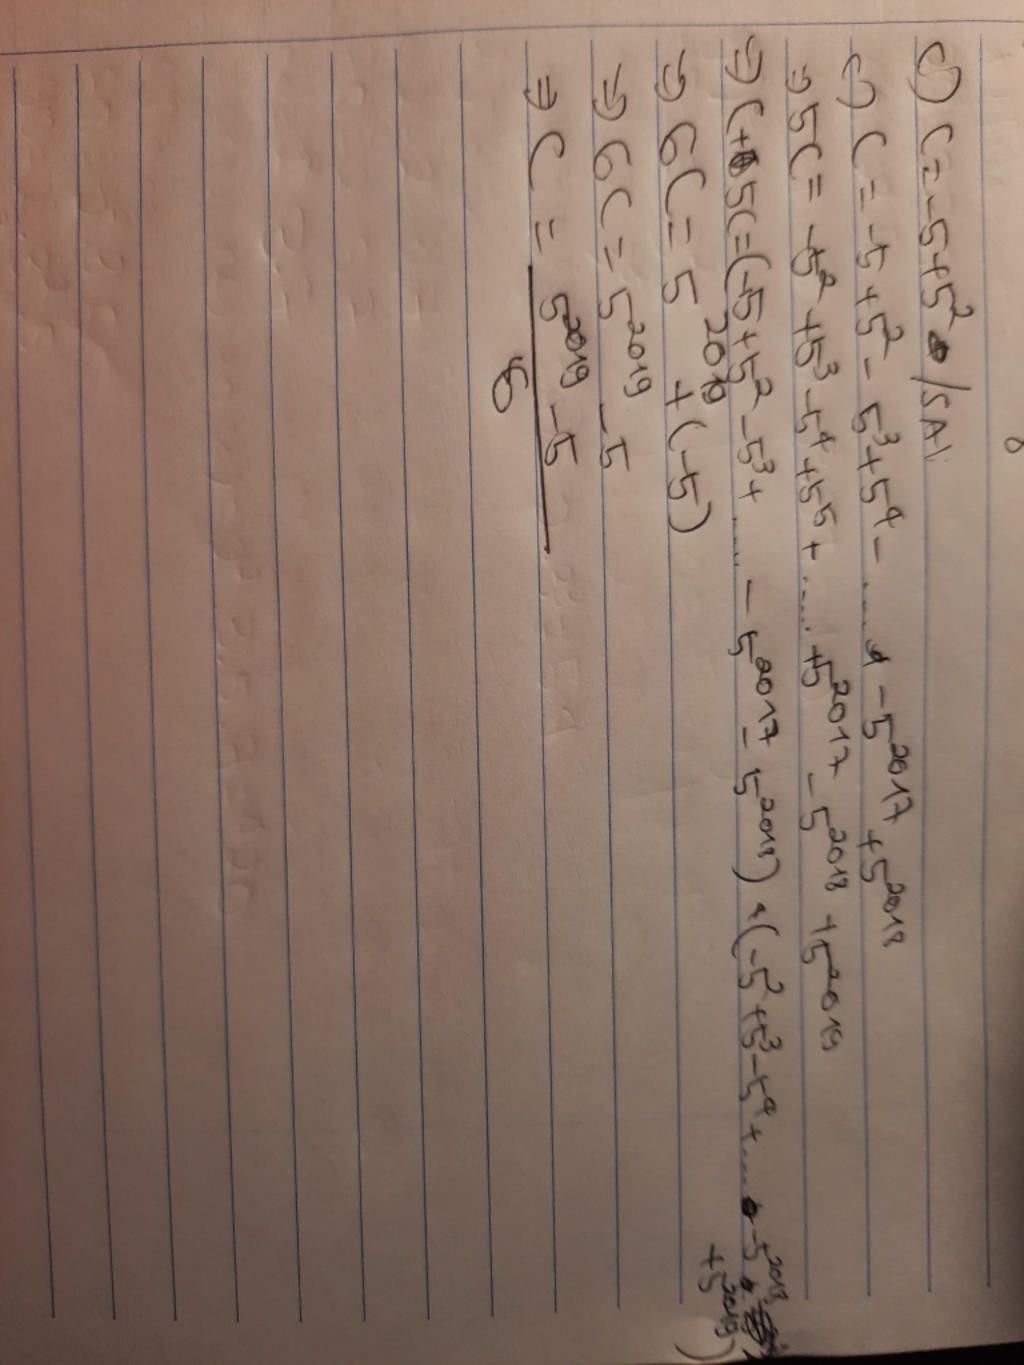 c) C = -5+5² /SAI
c) C = -5 + 5² - 5³ + 5⁴ - ..... - 5²⁰¹⁷ + 5²⁰¹⁸
⇒ 5C = -5² + 5³ - 5⁴ + 5⁵ + ..... + 5²⁰¹⁷ - 5²⁰¹⁸ + 5²⁰¹⁹
⇒ C + 5C = (-5 + 5² - 5³ + ..... - 5²⁰¹⁷ - 5²⁰¹⁸) + (-5² + 5³ - 5⁴ + ..... - 5²⁰¹⁸
+ 5²⁰¹⁹)
⇒ 6C = 5²⁰¹⁹ + (-5)
⇒ 6C = 5²⁰¹⁹ - 5
⇒ C = 5²⁰¹⁹ - 5
6